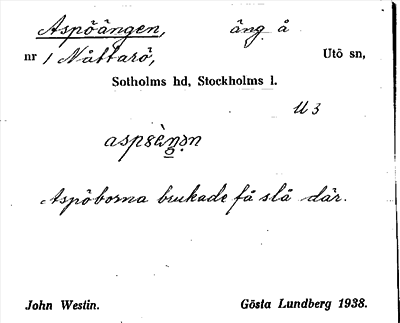 Aspöängen, äng å
nr 1 Nåttarö, Utö sn,
Sotholms hd, Stockholms l.
U 3
Aspöborna brukade få slå där.
John Westin. Gösta Lundberg 1938.